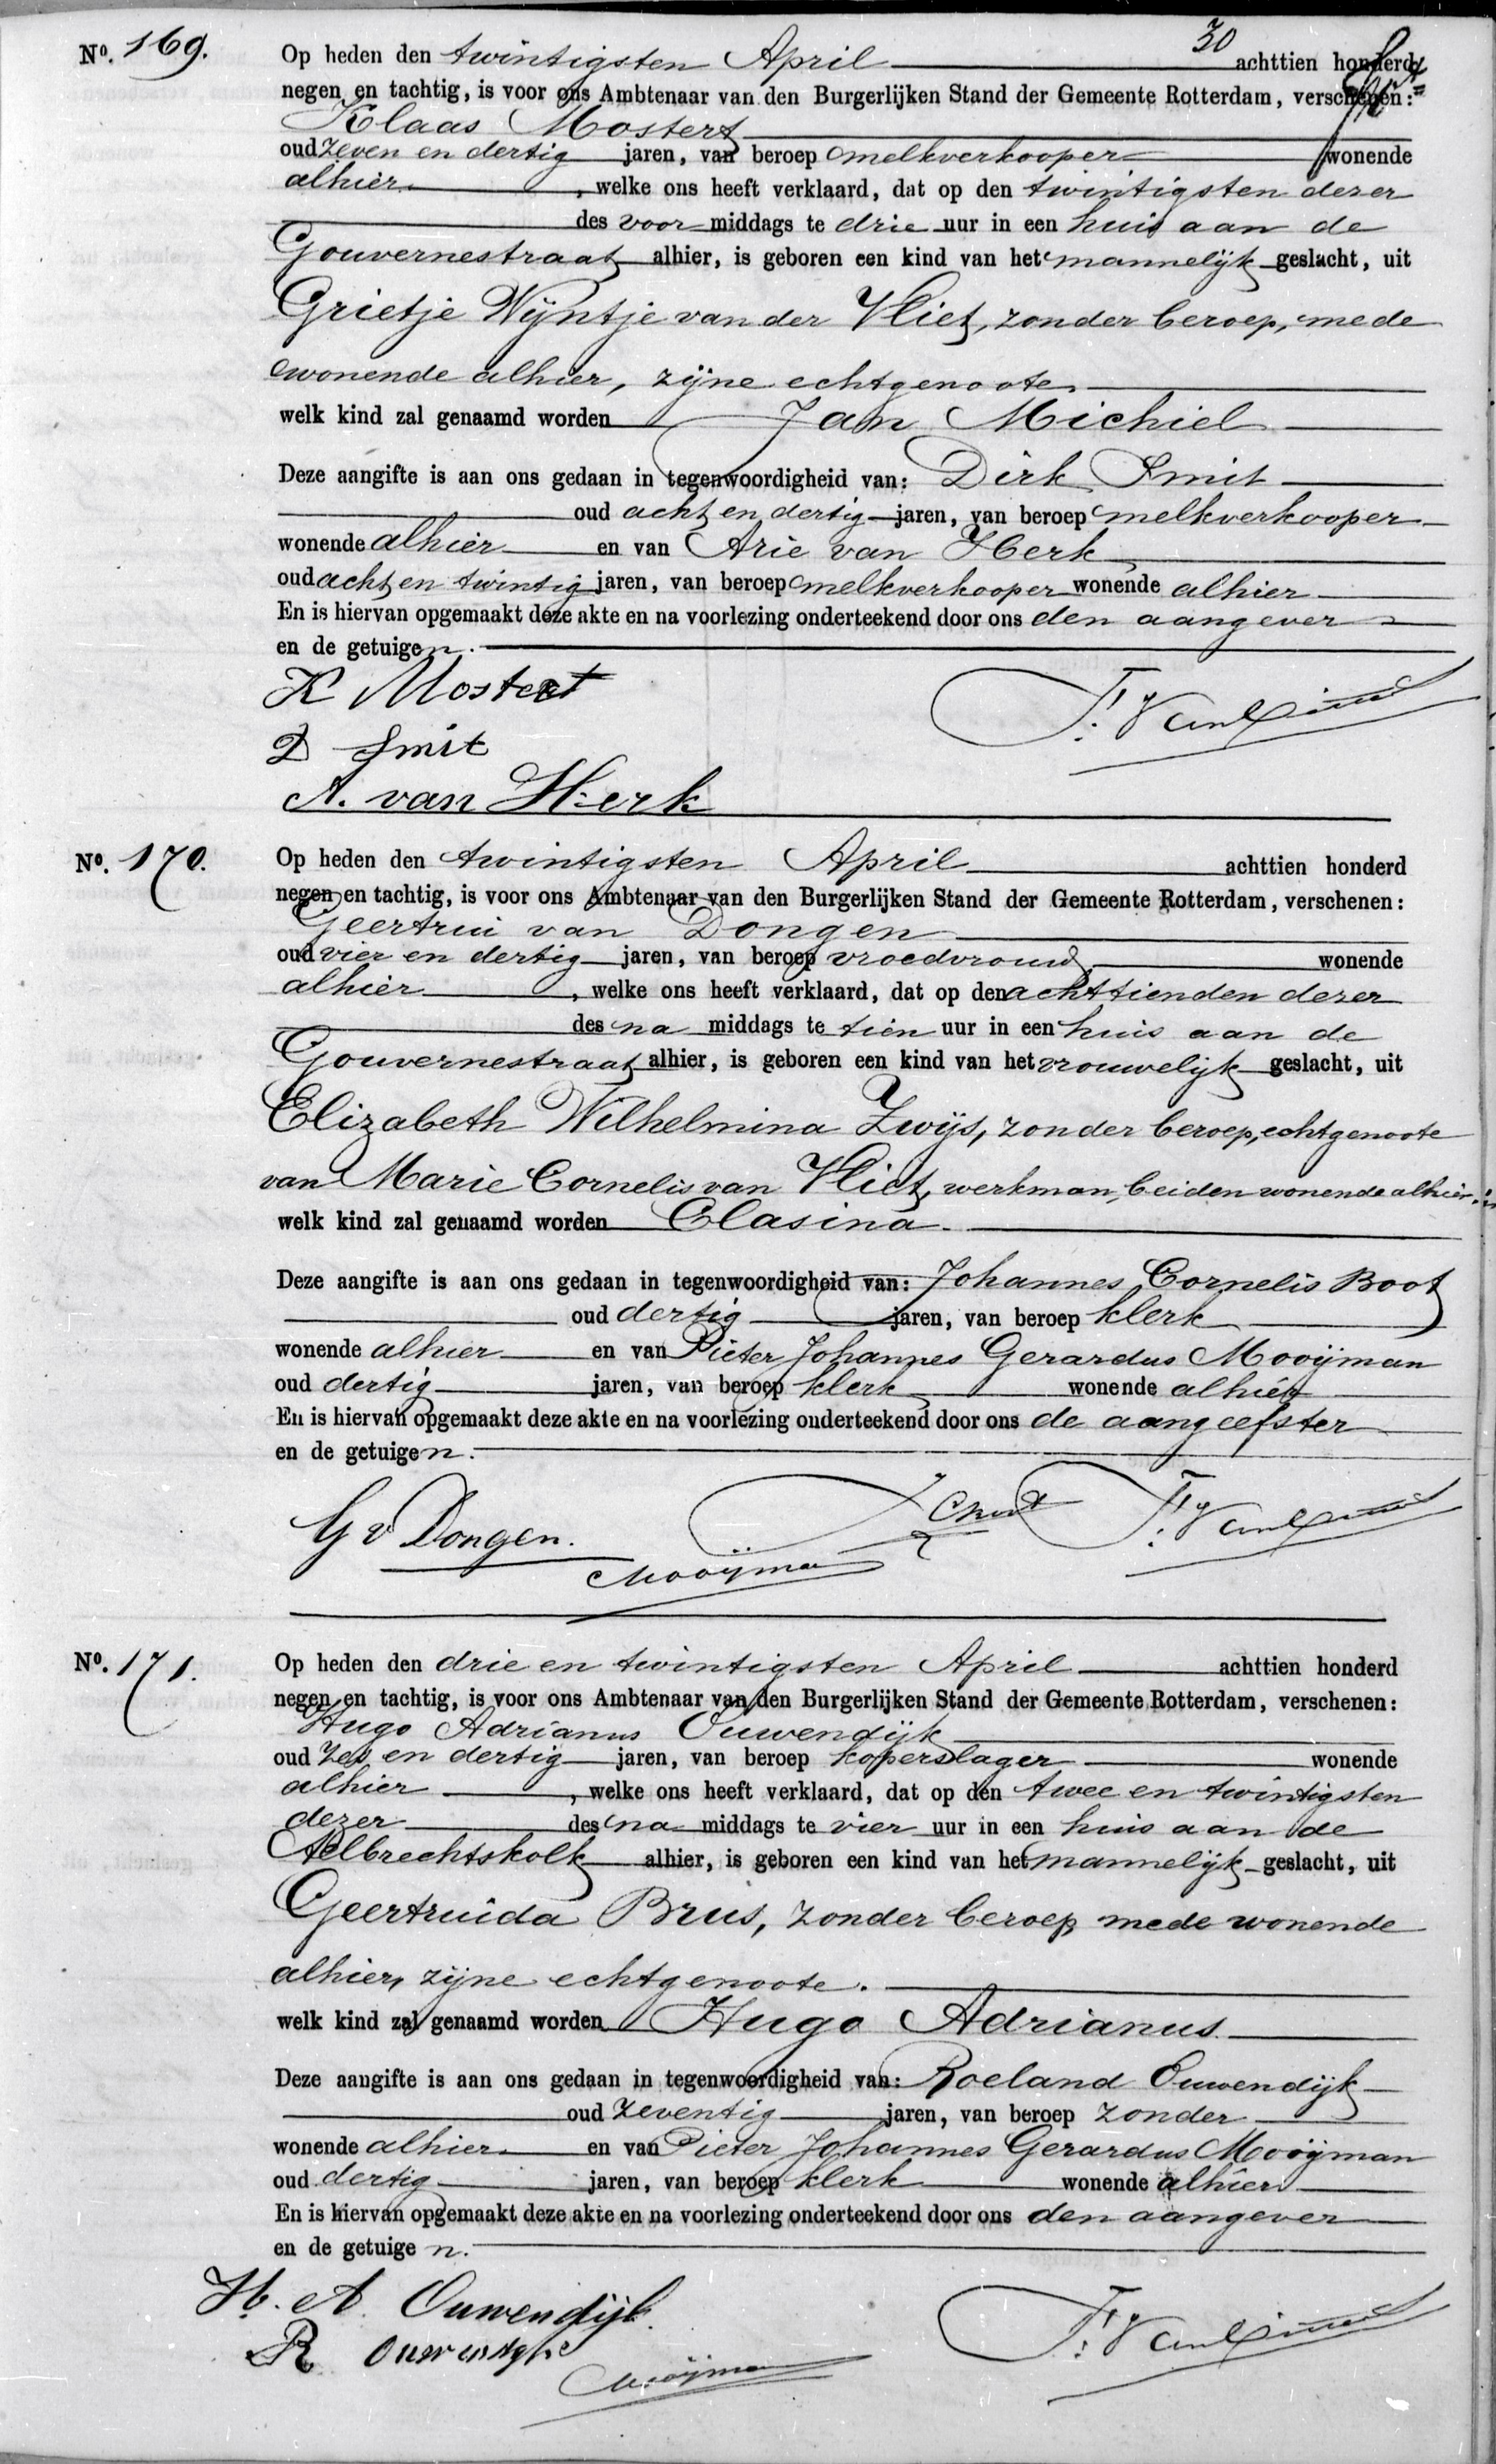 30
No. 169. Op heden den twintigsten April achttien honderd
negen en tachtig, is voor ons Ambtenaar van den Burgerlijken Stand der Gemeente Rotterdam, verschenen:
Klaas Mostert
oud zeven en dertig jaren, van beroep melkverkooper wonende
alhier, welke ons heeft verklaard, dat op den twintigsten dezer
des voor middags te drie uur in een huis aan de
Gouvernestraat alhier, is geboren een kind van het mannelijk geslacht, uit
Grietje Wijntje van der Vliet, zonder beroep, mede
wonende alhier, zijne echtgenoote
welk kind zal genaamd worden Jan Michiel
Deze aangifte is aan ons gedaan in tegenwoordigheid van: Dirk Smit
oud acht en dertig jaren, van beroep melkverkooper
wonende alhier en van Arie van Herk
oud acht en twintig jaren, van beroep melkverkooper wonende alhier
En is hiervan opgemaakt deze akte en na voorlezing onderteekend door ons den aangever
en de getuigen.
K Mostert
D Smit
A. van Herk
No. 170. Op heden den twintigsten April achttien honderd
negen en tachtig, is voor ons Ambtenaar van den Burgerlijken Stand der Gemeente Rotterdam, verschenen:
Geertrui van Dongen
oud vier en dertig jaren, van beroep vroedvrouw wonende
alhier, welke ons heeft verklaard, dat op den achttienden dezer
des na middags te tien uur in een huis aan de
Gouvernestraat alhier, is geboren een kind van het vrouwelijk geslacht, uit
Elizabeth Wilhelmina Zwijs, zonder beroep, echtgenoote
van Marie Cornelis van Vliet, werkman, beiden wonende alhier,
welk kind zal genaamd worden Clasina.
Deze aangifte is aan ons gedaan in tegenwoordigheid van: Johannes Cornelis Boot
oud dertig jaren, van beroep klerk
wonende alhier en van Pieter Johannes Gerardus Mooijman
oud dertig jaren, van beroep klerk wonende alhier
En is hiervan opgemaakt deze akte en na voorlezing onderteekend door ons de aangeefster
en de getuigen.
G v Dongen.
Mooijman
No. 171. Op heden den drie en twintigsten April achttien honderd
negen en tachtig, is voor ons Ambtenaar van den Burgerlijken Stand der Gemeente Rotterdam, verschenen:
Hugo Adrianus Ouwendijk
oud zes en dertig jaren, van beroep koperslager wonende
alhier, welke ons heeft verklaard, dat op den twee en twintigsten
dezer des na middags te vier uur in een huis aan de
Aelbrechtskolk alhier, is geboren een kind van het mannelijk geslacht, uit
Geertruida Brus, zonder beroep, mede wonende
alhier, zijne echtgenoote.
welk kind zal genaamd worden Hugo Adrianus.
Deze aangifte is aan ons gedaan in tegenwoordigheid van: Roeland Ouwendijk
oud zeventig jaren, van beroep zonder
wonende alhier en van Pieter Johannes Gerardus Mooijman
oud dertig jaren, van beroep klerk wonende alhier
En is hiervan opgemaakt deze akte en na voorlezing onderteekend door ons den aangever
en de getuigen.
H. A. Ouwendijk.
R Ouwendijk
Mooijman